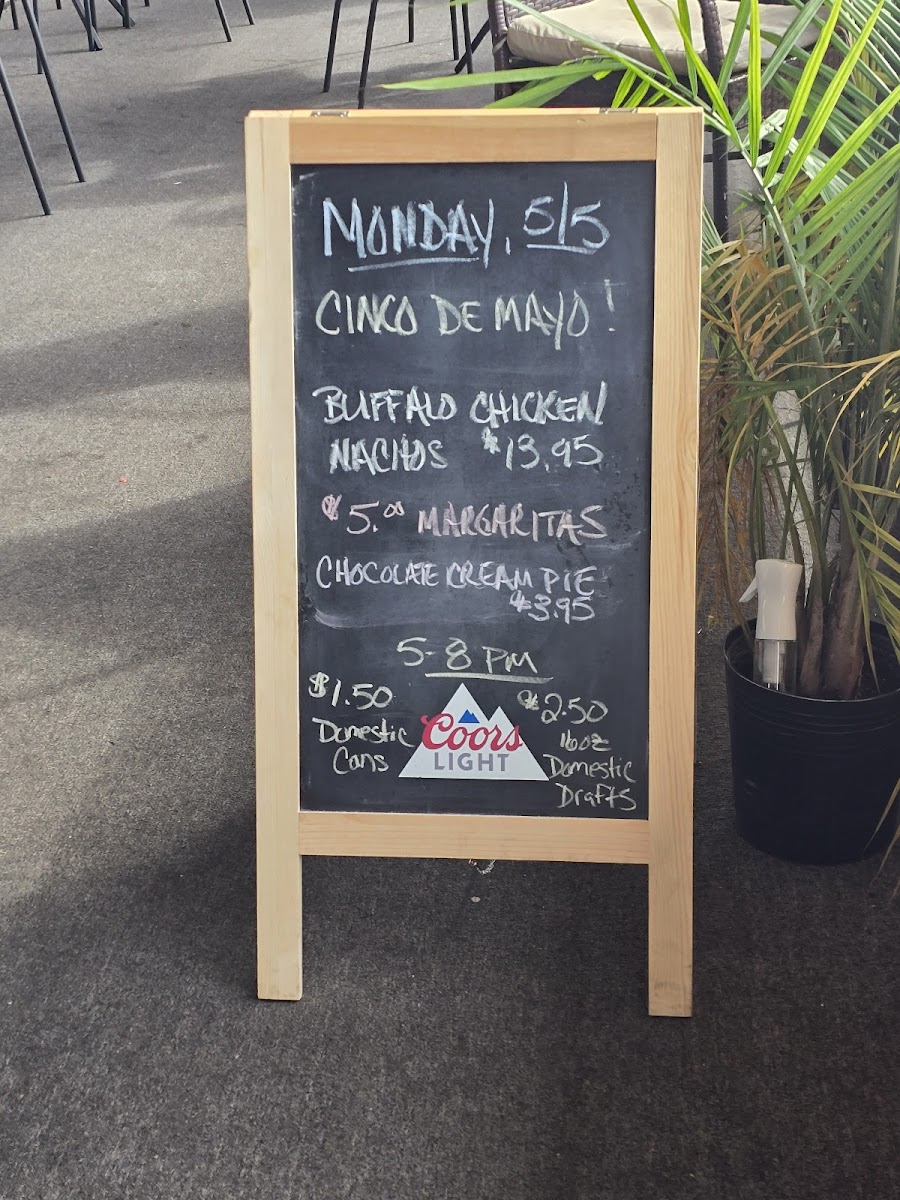 MONDAY, 5/5
CINCO DE MAYO!
BUFFALO CHICKEN
NACHOS $13.95
$5.00 MARGARITAS
CHOCOLATE CREAM PIE
$3.95
5-8 PM
$1.50
Domestic
Cans
Coors
LIGHT
$2.50
16oz
Domestic
Drafts